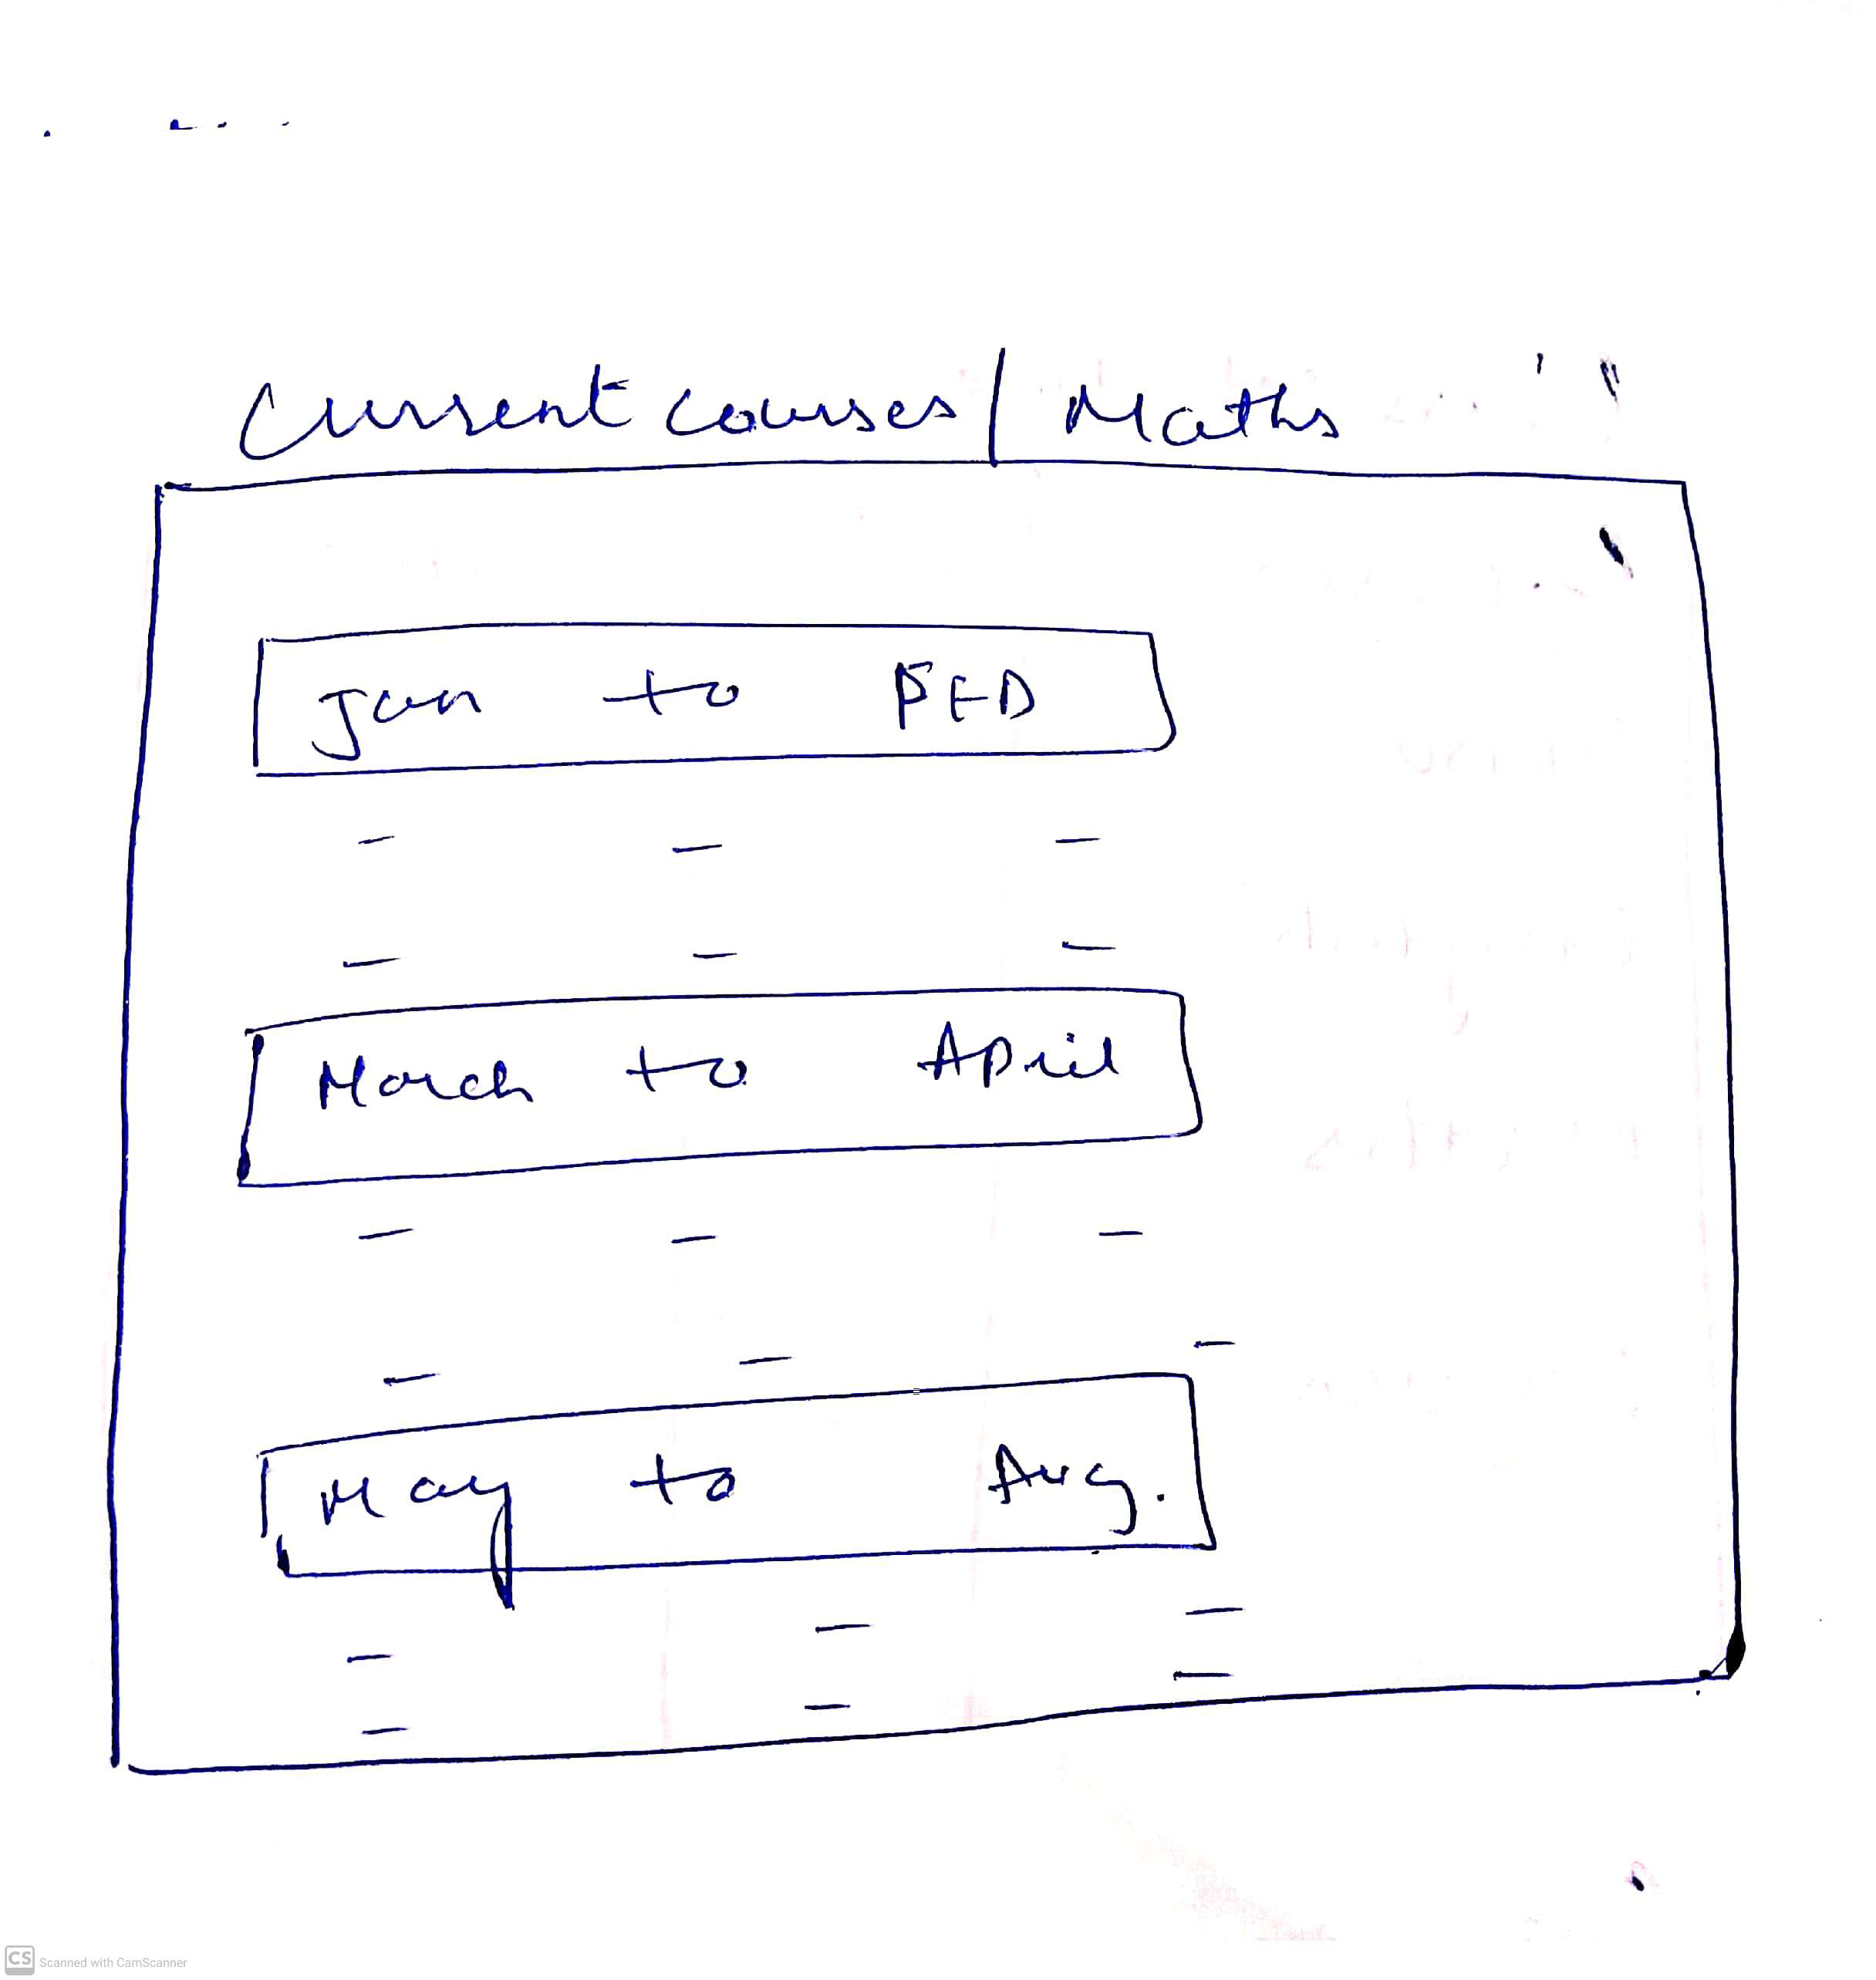 Current courses / Maths
Jan to FEB
- - -
- - -
March to April
- - -
- - -
May to Aug.
- - -
- - -
CS Scanned with CamScanner